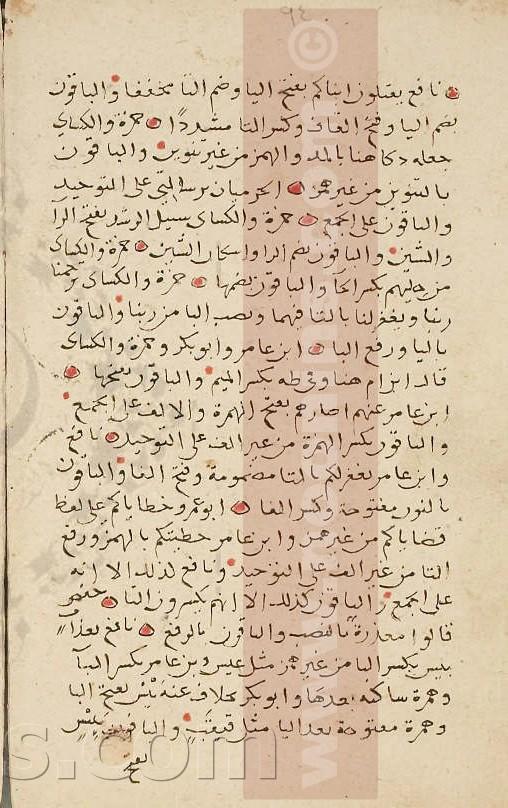 ٩٤
نافع يقتلون ابناكم بفتح اليا وضم التا مخففا والباقون
بضم اليا وفتح القاف وكسر التا مشددا حمزة والكساي
جعله دكا هنا بالمد والهمز من غير تنوين والباقون
بالتنوين من غير همز الحرميان برسالتي على التوحيد
والباقون على الجمع حمزة والكساي سبيل الرشد بفتح الرا
والشين والباقون بضم الرا واسكان الشين حمزة والكساي
من حليهم بكسر الحا والباقون بضمها حمزة والكساي ترحمنا
ربنا ويغفر لنا بالتا فيهما ونصب البا من ربنا والباقون
باليا ورفع البا ابن عامر وابو بكر وحمزة والكساي
قال ابن ام هنا وفي طه بكسر الميم والباقون بفتحها
ابن عامر عنهم اصارهم بفتح الهمزة والالف على الجمع
والباقون بكسر الهمزة من غير الف على التوحيد نافع
وابن عامر تغفر لكم بالتا مضمومة وفتح الفا والباقون
بالنون مفتوحة وكسر الفا ابو عمرو خطاياكم على لفظ
قضاياكم من غير همز وابن عامر خطيتكم بالهمز ورفع
التا من غير الف على التوحيد ونافع كذلك الا انه
على الجمع والباقون كذلك الا انهم يكسرون التا حفص
قالوا معذرة بالنصب والباقون بالرفع نافع بعذاب
بيس بكسر البا من غير همز مثل عيس وبن عامر بكسر البا
وهمزة ساكنة بعدها وابو بكر بخلاف عنه بَيْئَس بفتح البا
وهمزة مفتوحة بعد اليا مثل قيقب والباقون بئيس
بفتح
s.com
©